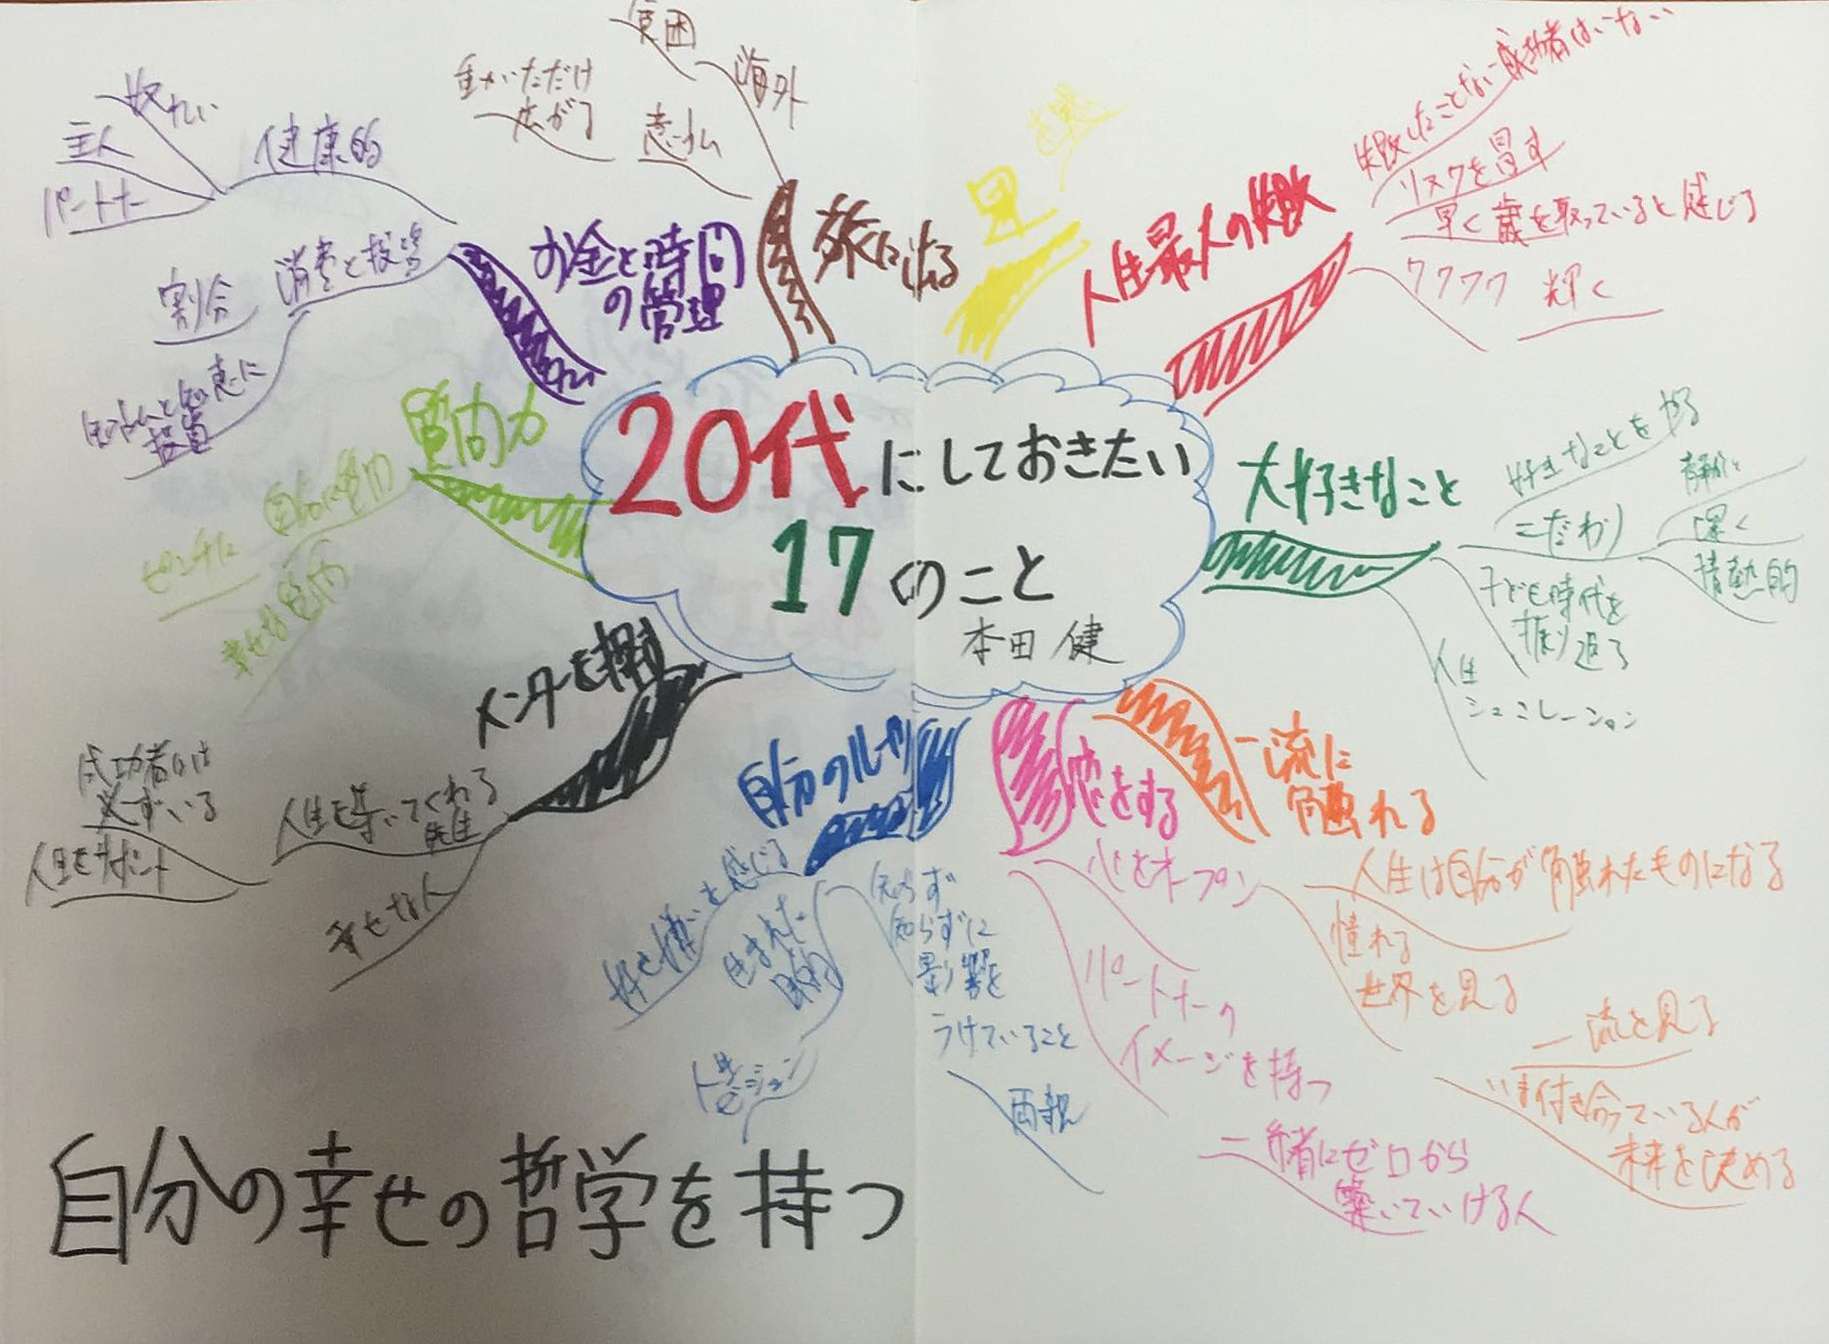 20代にしておきたい
17のこと
本田 健
人生最大の失敗
失敗したことない成功者はいない
リスクを冒す
早く歳を取っていると感じる
ワクワク 輝く
大好きなこと
好きなことをやる
こだわり
深く
情熱的
子ども時代を
振り返る
人生
シュミレーション
一流に
触れる
人生は自分が触れたものになる
憧れる
世界を見る
一流を見る
いま付き合っている人が
未来を決める
恋をする
心をオープン
パートナーの
イメージを持つ
一緒にゼロから
築いていける人
自分のルーツ
知らず
知らずに
影響を
うけていること
両親
生まれた
目的
メンターを探す
人生を導いてくれる
先生
成功者には
必ずいる
人生をサポート
幸せな人
質問力
自分に質問
ピンチに
幸せな質問
お金と時間
の管理
健康的
奴れい
主人
パートナー
消費と投資
割合
知恵に
投資
旅に出る
海外
貧困
動いただけ
広がる
運
自分の幸せの哲学を持つ